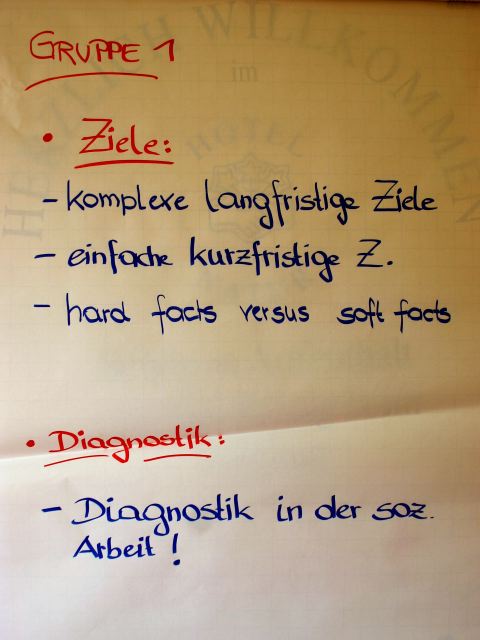 GRUPPE 1
HERZLICH WILLKOMMEN
im
HOTEL
• Ziele:
– komplexe langfristige Ziele
– einfache kurzfristige Z.
– hard facts versus soft facts
• Diagnostik:
– Diagnostik in der soz.
Arbeit!